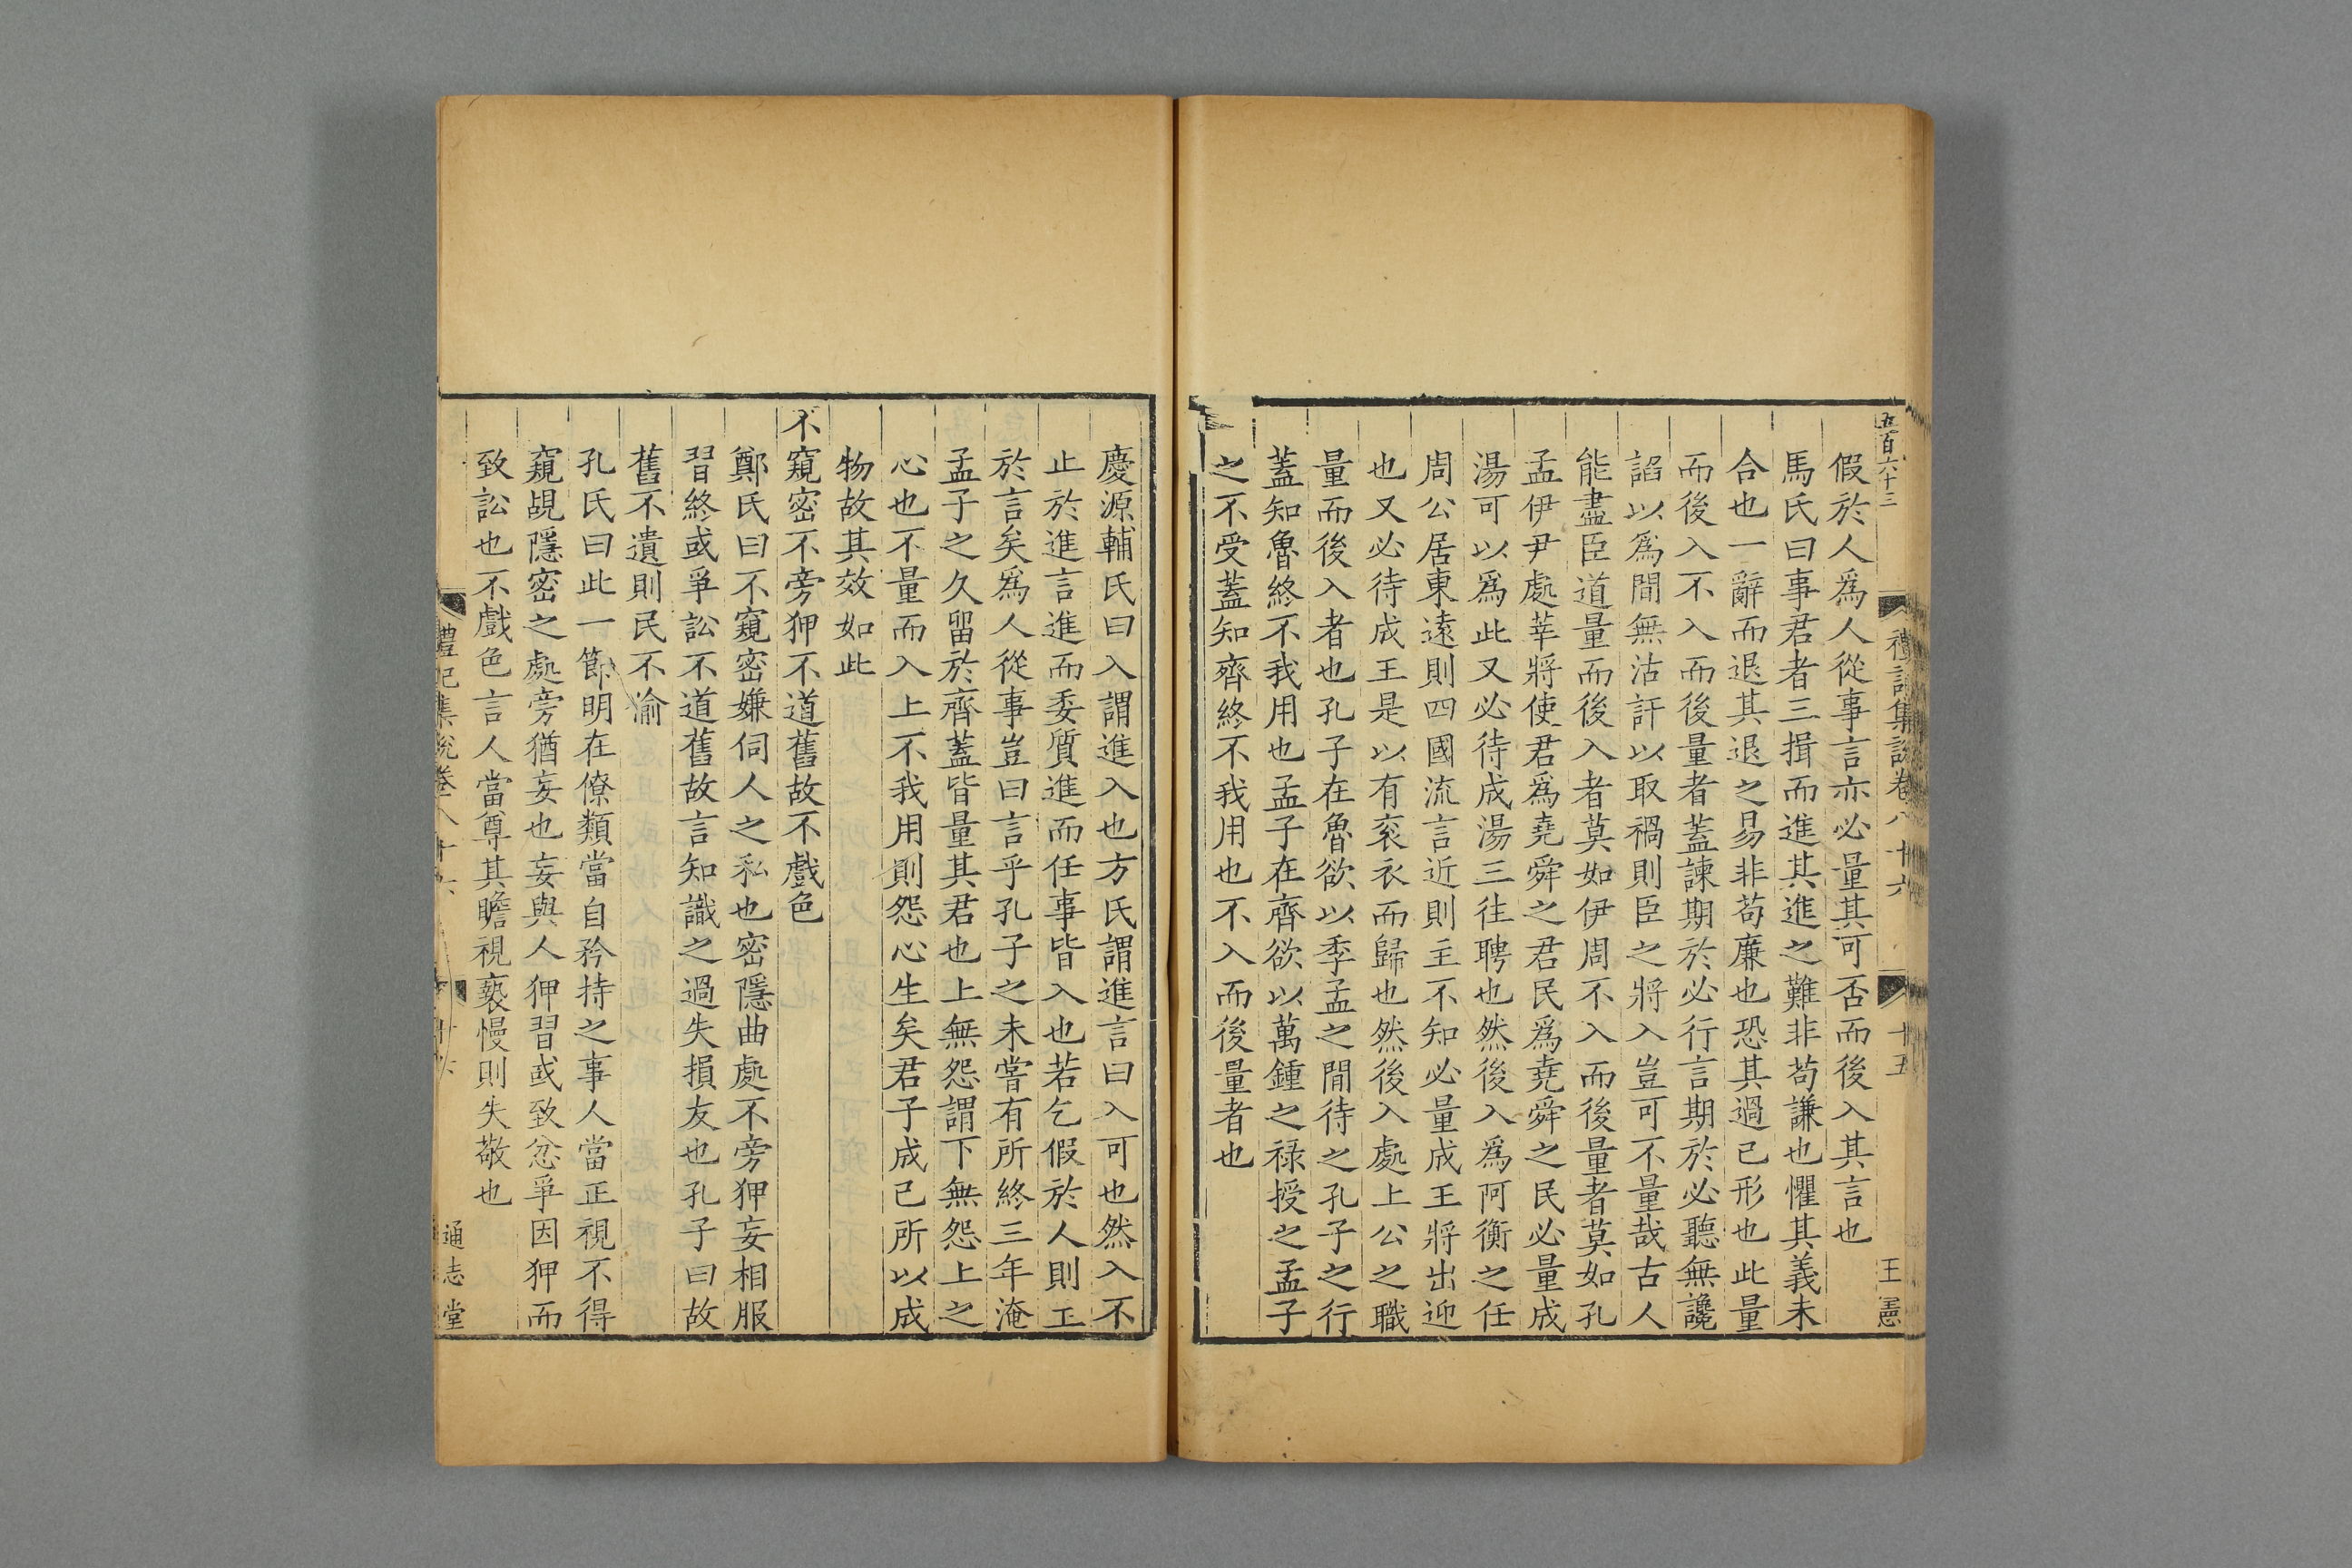 五百六十三
禮記集說卷八十六
十五
王憲
假於人爲人從事言亦必量其可否而後入其言也
馬氏曰事君者三揖而進其進之難非苟謙也懼其義未
合也一辭而退其退之易非苟廉也恐其過已形也此量
而後入不入而後量者蓋諫期於必行言期於必聽無讒
諂以爲間無沽訐以取禍則臣之將入豈可不量哉古人
能盡臣道量而後入者莫如伊周不入而後量者莫如孔
孟伊尹處莘將使君爲堯舜之君民爲堯舜之民必量成
湯可以爲此又必待成湯三往聘也然後入爲阿衡之任
周公居東遠則四國流言近則主不知必量成王將出迎
也又必待成王是以有袞衣而歸也然後入處上公之職
量而後入者也孔子在魯欲以季孟之閒待之孔子之行
蓋知魯終不我用也孟子在齊欲以萬鍾之禄授之孟子
之不受蓋知齊終不我用也不入而後量者也
慶源輔氏曰入謂進入也方氏謂進言曰入可也然入不
止於進言進而委質進而任事皆入也若乞假於人則正
於言矣爲人從事豈曰言乎孔子之未嘗有所終三年淹
孟子之久留於齊蓋皆量其君也上無怨謂下無怨上之
心也不量而入上不我用則怨心生矣君子成己所以成
物故其效如此
不窺密不旁狎不道舊故不戲色
鄭氏曰不窺密嫌伺人之私也密隱曲處不旁狎妄相服
習終或爭訟不道舊故言知識之過失損友也孔子曰故
舊不遺則民不渝
孔氏曰此一節明在僚類當自矜持之事人當正視不得
窺覘隱密之處旁猶妄也妄與人狎習或致忿爭因狎而
致訟也不戲色言人當尊其瞻視褻慢則失敬也
禮記集說卷八十六
十六
通志堂